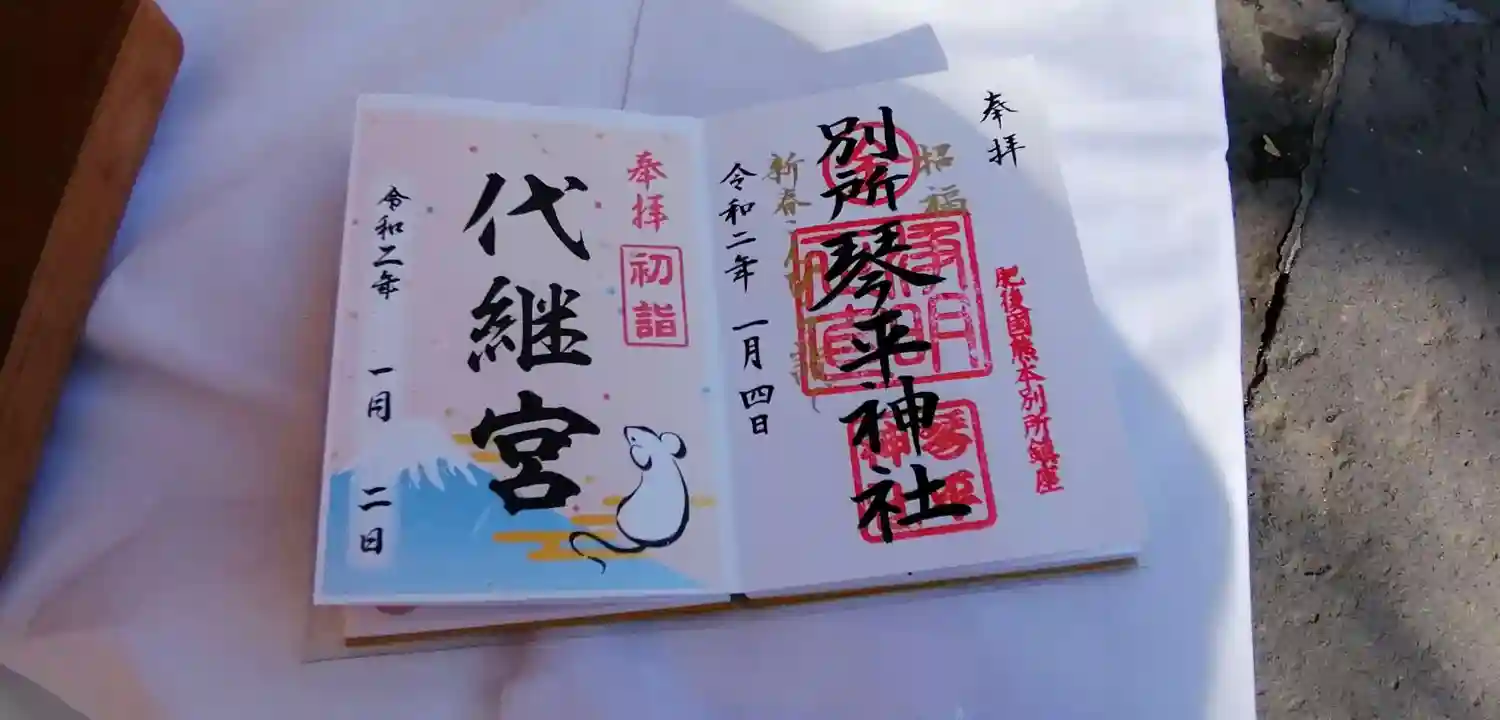 奉拝
肥後國熊本別所鎮座
招福
別所琴平神社
新春
令和二年 一月四日
奉拝
初詣
代継宮
令和二年 一月 二日